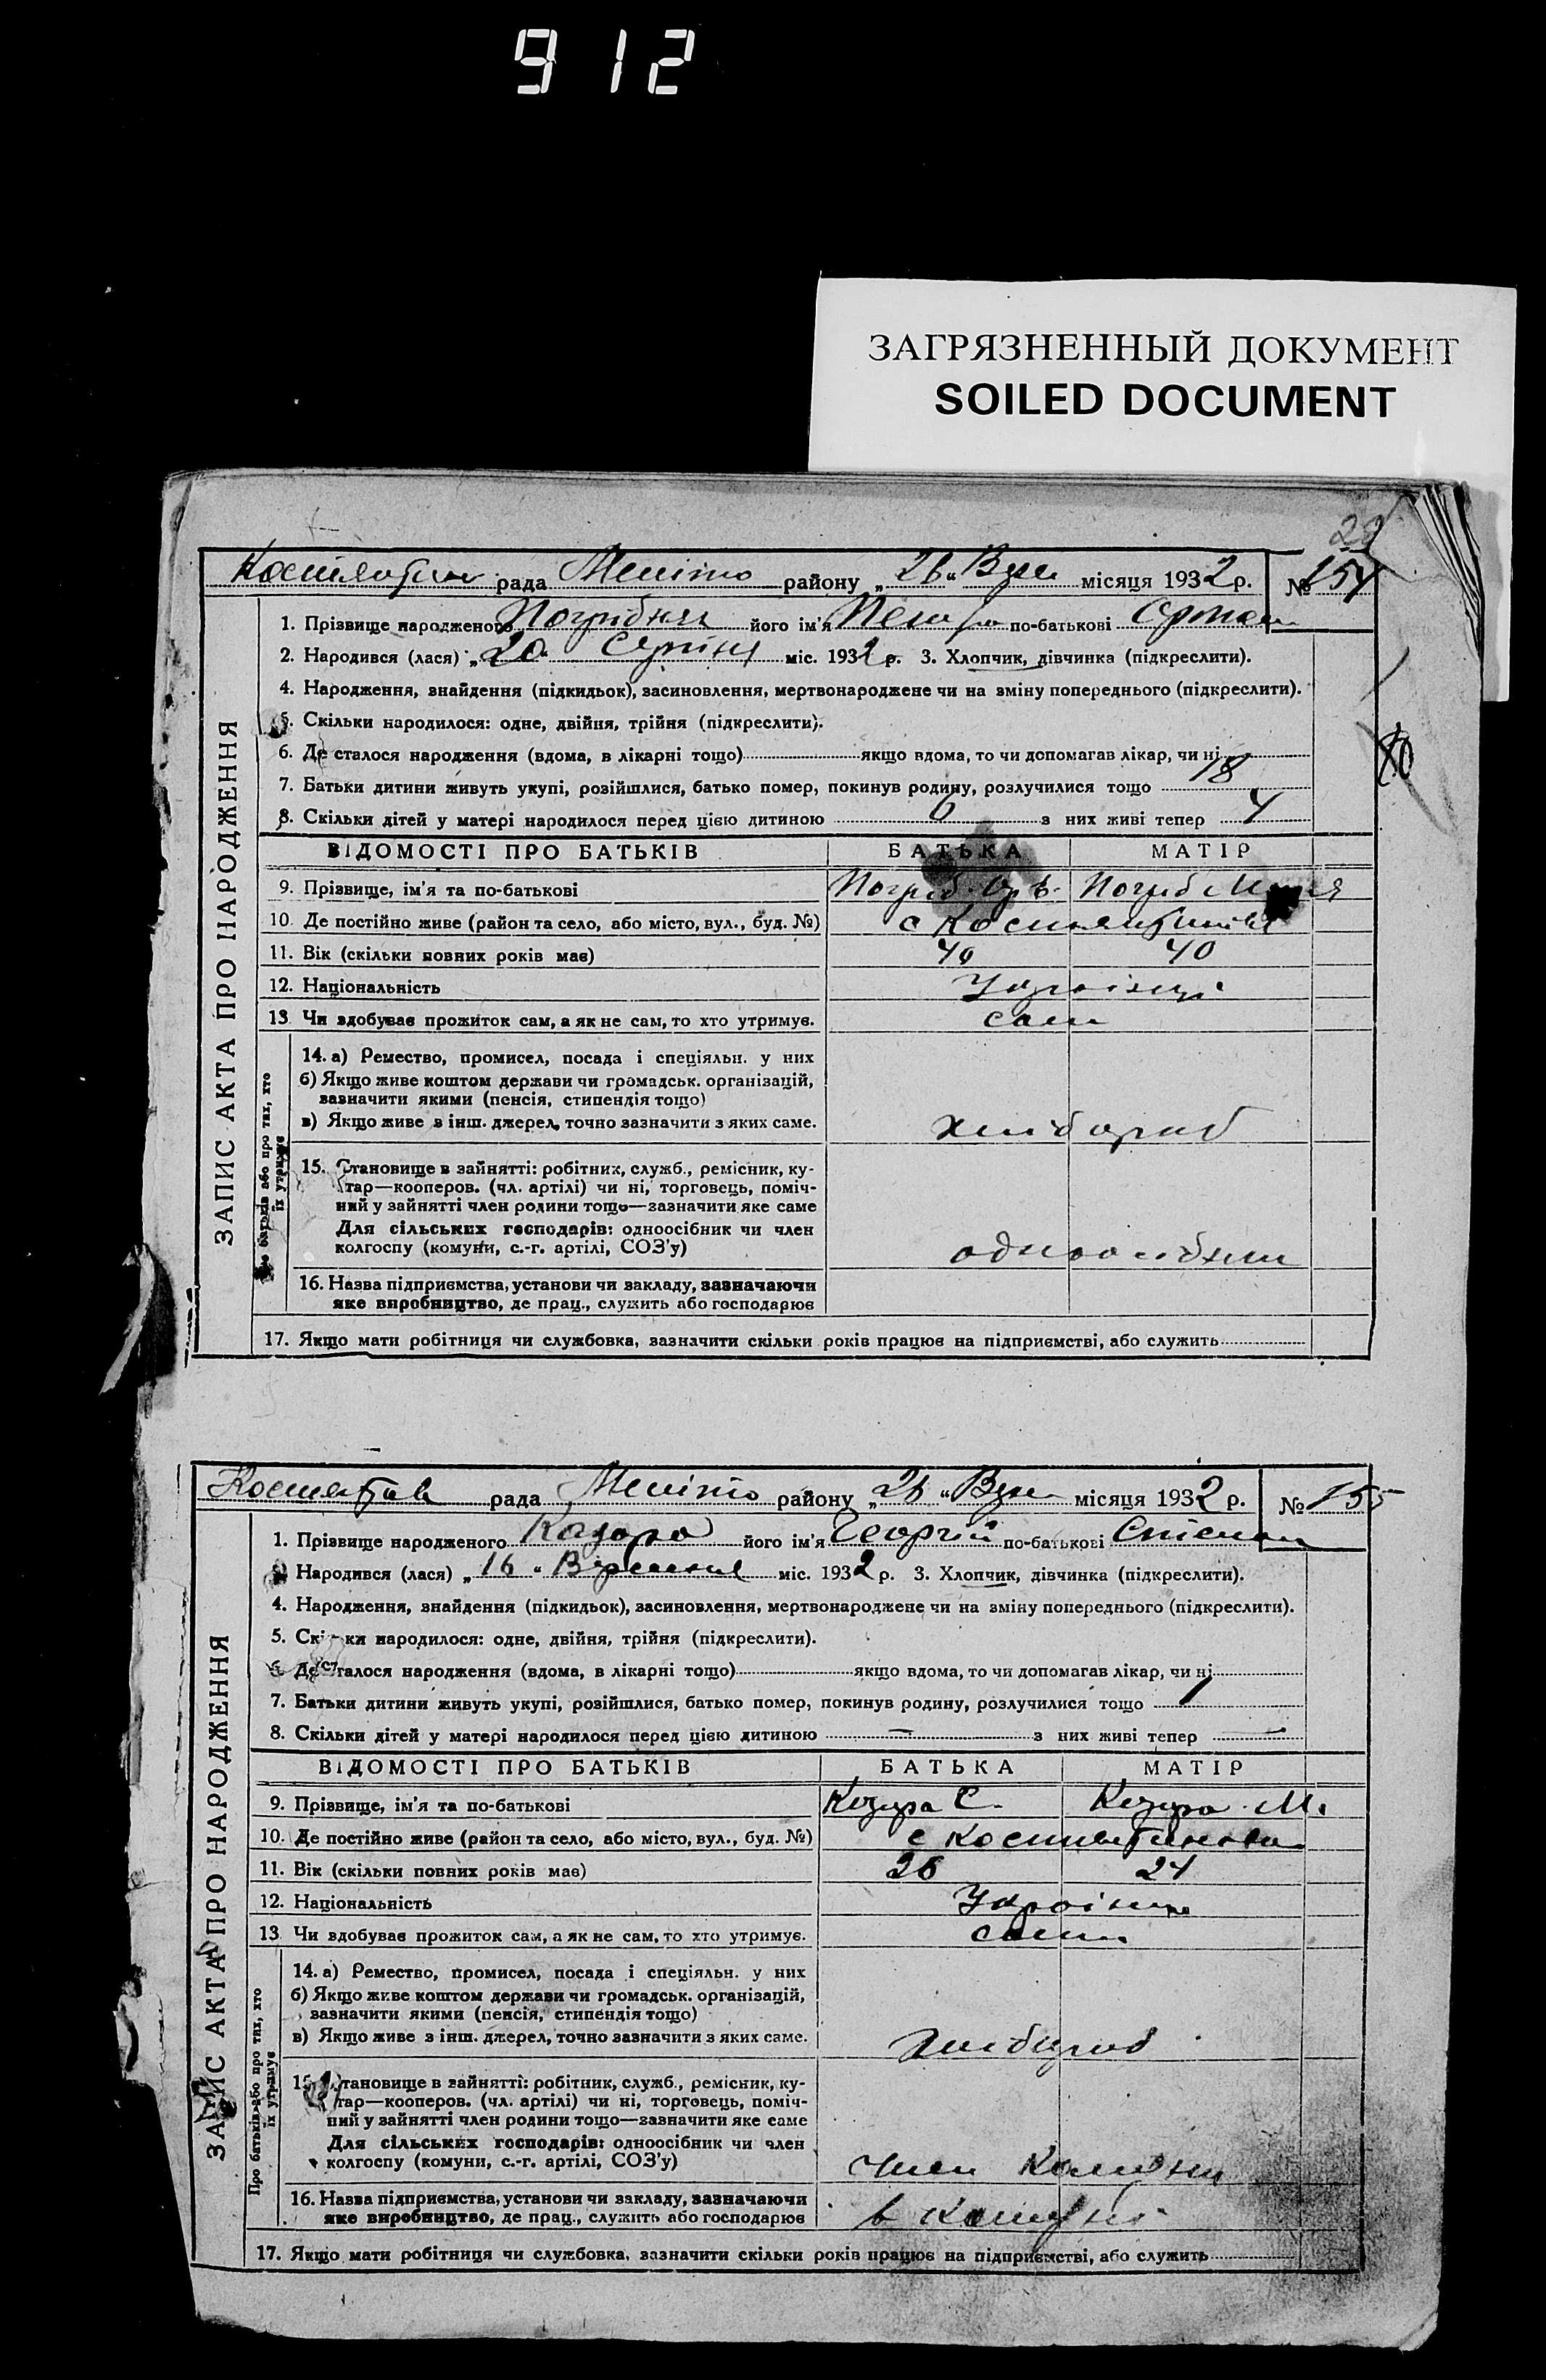 912
ЗАГРЯЗНЕННЫЙ ДОКУМЕНТ
SOILED DOCUMENT
ЗАПИС АКТА ПРО НАРОДЖЕННЯ
рада району „26“ місяця 1932 р. № 154
1. Прізвище народженого його ім'я по-батькові
2. Народився (лася) „20“ Серпня міс. 1932 р. 3. Хлопчик, дівчинка (підкреслити).
4. Народження, знайдення (підкидьок), засиновлення, мертвонароджене чи на зміну попереднього (підкреслити).
5. Скільки народилося: одне, двійня, трійня (підкреслити).
6. Де сталося народження (вдома, в лікарні тощо) якщо вдома, то чи допомагав лікар, чи ні
7. Батьки дитини живуть укупі, розійшлися, батько помер, покинув родину, розлучилися тощо 18
8. Скільки дітей у матері народилося перед цією дитиною 6 з них живі тепер 4
ВІДОМОСТІ ПРО БАТЬКІВ БАТЬКА МАТІР
9. Прізвище, ім'я та по-батькові
10. Де постійно живе (район та село, або місто, вул., буд. №) с
11. Вік (скільки повних років має) 40 40
12. Національність Українці
13 Чи здобуває прожиток сам, а як не сам, то хто утримує. сам
Про батьків або про тих, хто їх утримує
14. а) Ремество, промисел, посада і спеціяльн. у них
б) Якщо живе коштом держави чи громадськ. організацій,
зазначити якими (пенсія, стипендія тощо)
в) Якщо живе з інш. джерел, точно зазначити з яких саме. хлібороб
15. Становище в зайнятті: робітник, служб., ремісник, ку-
тар—кооперов. (чл. артілі) чи ні, торговець, поміч-
ний у зайнятті член родини тощо—зазначити яке саме
Для сільських господарів: одноосібник чи член
колгоспу (комуни, с.-г. артілі, СОЗ'у) одноосібник
16. Назва підприємства, установи чи закладу, зазначаючи
яке виробництво, де прац., служить або господарює
17. Якщо мати робітниця чи службовка, зазначити скільки років працює на підприємстві, або служить
ЗАПИС АКТА ПРО НАРОДЖЕННЯ
рада району „26“ місяця 1932 р. № 155
1. Прізвище народженого його ім'я Георгій по-батькові
2. Народився (лася) „16“ Вересня міс. 1932 р. 3. Хлопчик, дівчинка (підкреслити).
4. Народження, знайдення (підкидьок), засиновлення, мертвонароджене чи на зміну попереднього (підкреслити).
5. Скільки народилося: одне, двійня, трійня (підкреслити).
6. Де сталося народження (вдома, в лікарні тощо) якщо вдома, то чи допомагав лікар, чи ні
7. Батьки дитини живуть укупі, розійшлися, батько помер, покинув родину, розлучилися тощо 1
8. Скільки дітей у матері народилося перед цією дитиною — з них живі тепер —
ВІДОМОСТІ ПРО БАТЬКІВ БАТЬКА МАТІР
9. Прізвище, ім'я та по-батькові С. М.
10. Де постійно живе (район та село, або місто, вул., буд. №) с
11. Вік (скільки повних років має) 26 24
12. Національність Українці
13 Чи здобуває прожиток сам, а як не сам, то хто утримує. сами
Про батьків або про тих, хто їх утримує
14. а) Ремество, промисел, посада і спеціяльн. у них
б) Якщо живе коштом держави чи громадськ. організацій,
зазначити якими (пенсія, стипендія тощо)
в) Якщо живе з інш. джерел, точно зазначити з яких саме. хлібороб
15. Становище в зайнятті: робітник, служб., ремісник, ку-
тар—кооперов. (чл. артілі) чи ні, торговець, поміч-
ний у зайнятті член родини тощо—зазначити яке саме
Для сільських господарів: одноосібник чи член
колгоспу (комуни, с.-г. артілі, СОЗ'у) член комуни
16. Назва підприємства, установи чи закладу, зазначаючи
яке виробництво, де прац., служить або господарює в комуні
17. Якщо мати робітниця чи службовка, зазначити скільки років працює на підприємстві, або служить